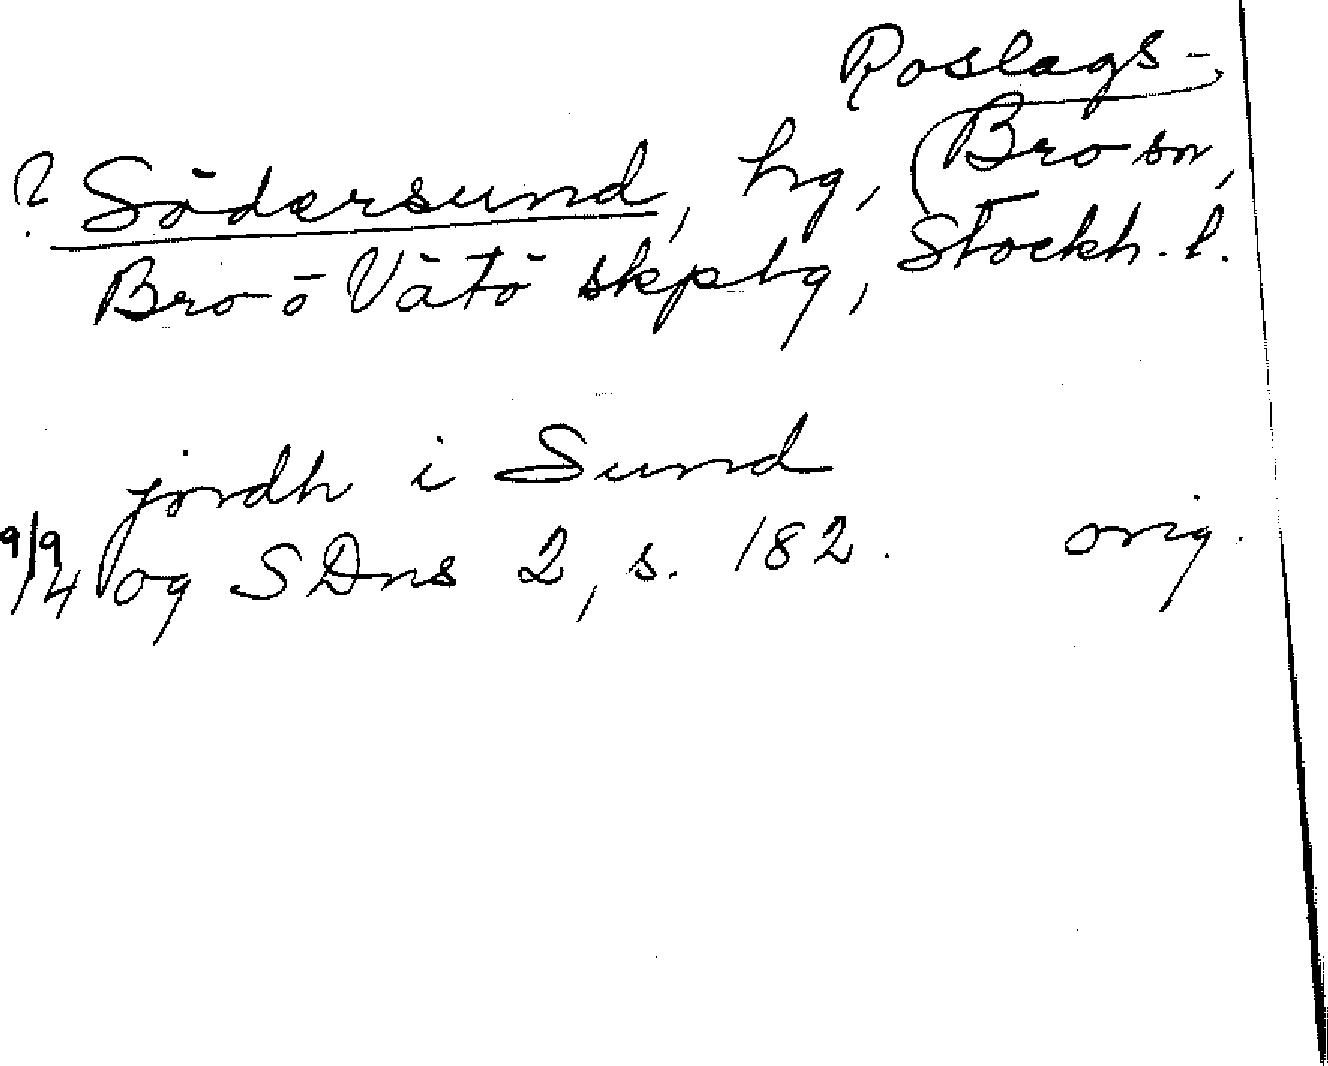 Roslags-
? Södersund, hg, Bro sn,
Bro o Vätö skptg, Stockh. l.
jordh i Sund
9/9
14 og SDns 2, s. 182. orig.